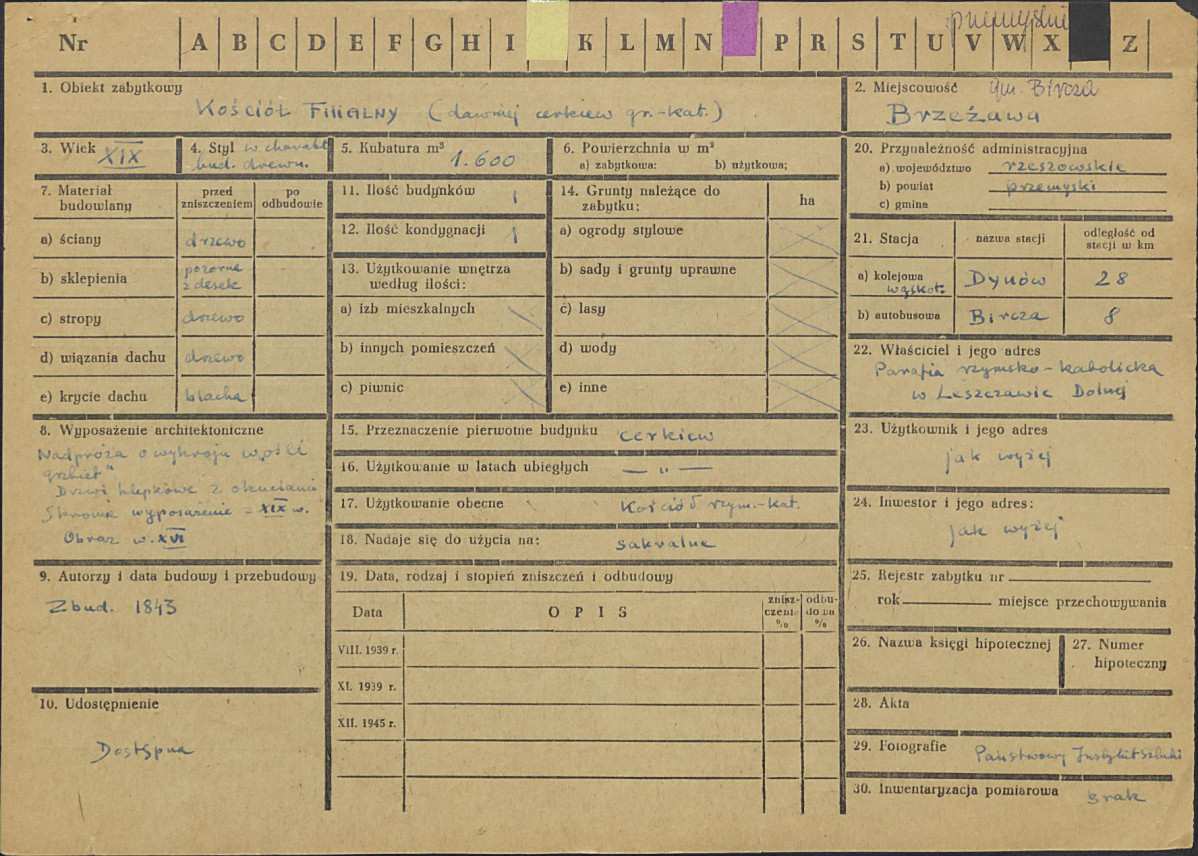 przemyskie
Nr A B C D E F G H I K L M N P R S T U V W X Z
1. Obiekt zabytkowy
Kościół Filialny (dawniej cerkiew gr.-kat.)
2. Miejscowość gm. Bircza
Brzeżawa
3. Wiek XIX
4. Styl w charakt.
bud. drewn.
5. Kubatura m³
1.600
6. Powierzchnia w m²
a) zabytkowa: b) użytkowa;
20. Przynależność administracyjna
a) województwo rzeszowskie
b) powiat przemyski
c) gmina
7. Materiał
budowlany
przed
zniszczeniem
po
odbudowie
a) ściany drzewo
b) sklepienia pozorne
z desek
c) stropy drzewo
d) wiązania dachu drzewo
e) krycie dachu blacha
11. Ilość budynków 1
12. Ilość kondygnacji 1
13. Użytkowanie wnętrza
według ilości:
a) izb mieszkalnych
b) innych pomieszczeń
c) piwnic
14. Grunty należące do
zabytku;
ha
a) ogrody stylowe
b) sady i grunty uprawne
c) lasy
d) wody
e) inne
21. Stacja
nazwa stacji
odległość od
stacji w km
a) kolejowa
wąskot. Dynów 28
b) autobusowa Bircza 8
22. Właściciel i jego adres
Parafia rzymsko-katolicka
w Leszczawie Dolnej
8. Wyposażenie architektoniczne
Nadproża o wykroju w „ośli
grzbiet"
Drzwi klepkowe z okuciami
Skromne wyposażenie - XIX w.
Obraz w. XVI
15. Przeznaczenie pierwotne budynku cerkiew
16. Użytkowanie w latach ubiegłych — „ —
17. Użytkowanie obecne Kościół rzym.-kat.
18. Nadaje się do użycia na: sakralne
23. Użytkownik i jego adres
jak wyżej
24. Inwestor i jego adres:
jak wyżej
9. Autorzy i data budowy i przebudowy
Zbud. 1843
10. Udostępnienie
Dostępna
19. Data, rodzaj i stopień zniszczeń i odbudowy
Data
OPIS
znisz-
czenia
%
odbu-
dowa
%
VIII. 1939 r.
XI. 1939 r.
XII. 1945 r.
25. Rejestr zabytku nr
rok miejsce przechowywania
26. Nazwa księgi hipotecznej
27. Numer
hipoteczny
28. Akta
29. Fotografie Państwowy Instytut Sztuki
30. Inwentaryzacja pomiarowa brak